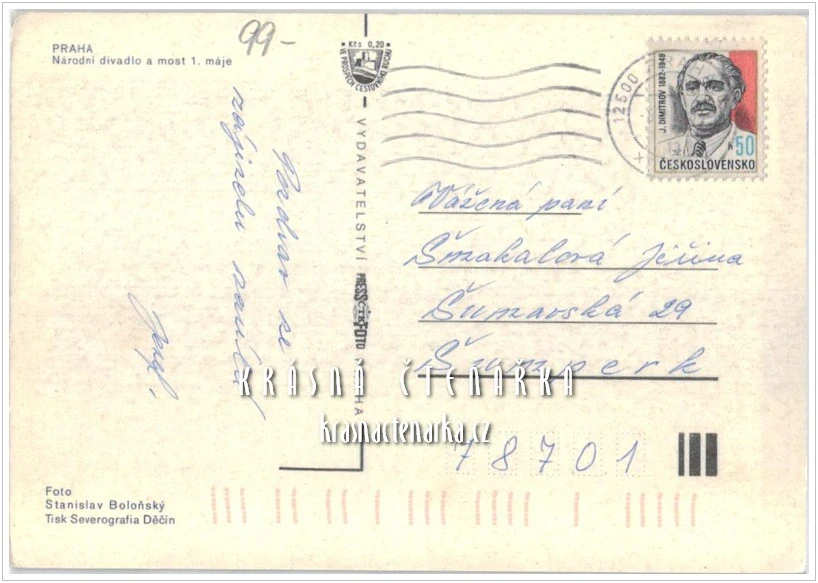 PRAHA
Národní divadlo a most 1. máje
99-
Kčs 0,20
VE PROSPĚCH CESTOVNÍHO RUCHU
12500
J. DIMITROV 1882-1949
50
ČESKOSLOVENSKO
Pozdrav ze
zájezdu zasílá
VYDAVATELSTVÍ PRESSFOTO PRAHA
Vážená paní
Šmakalová Jiřina
Šumavská 29
Šumperk
78701
KRÁSNÁ ČTENÁŘKA
krasnactenarka.cz
Foto
Stanislav Boloňský
Tisk Severografia Děčín